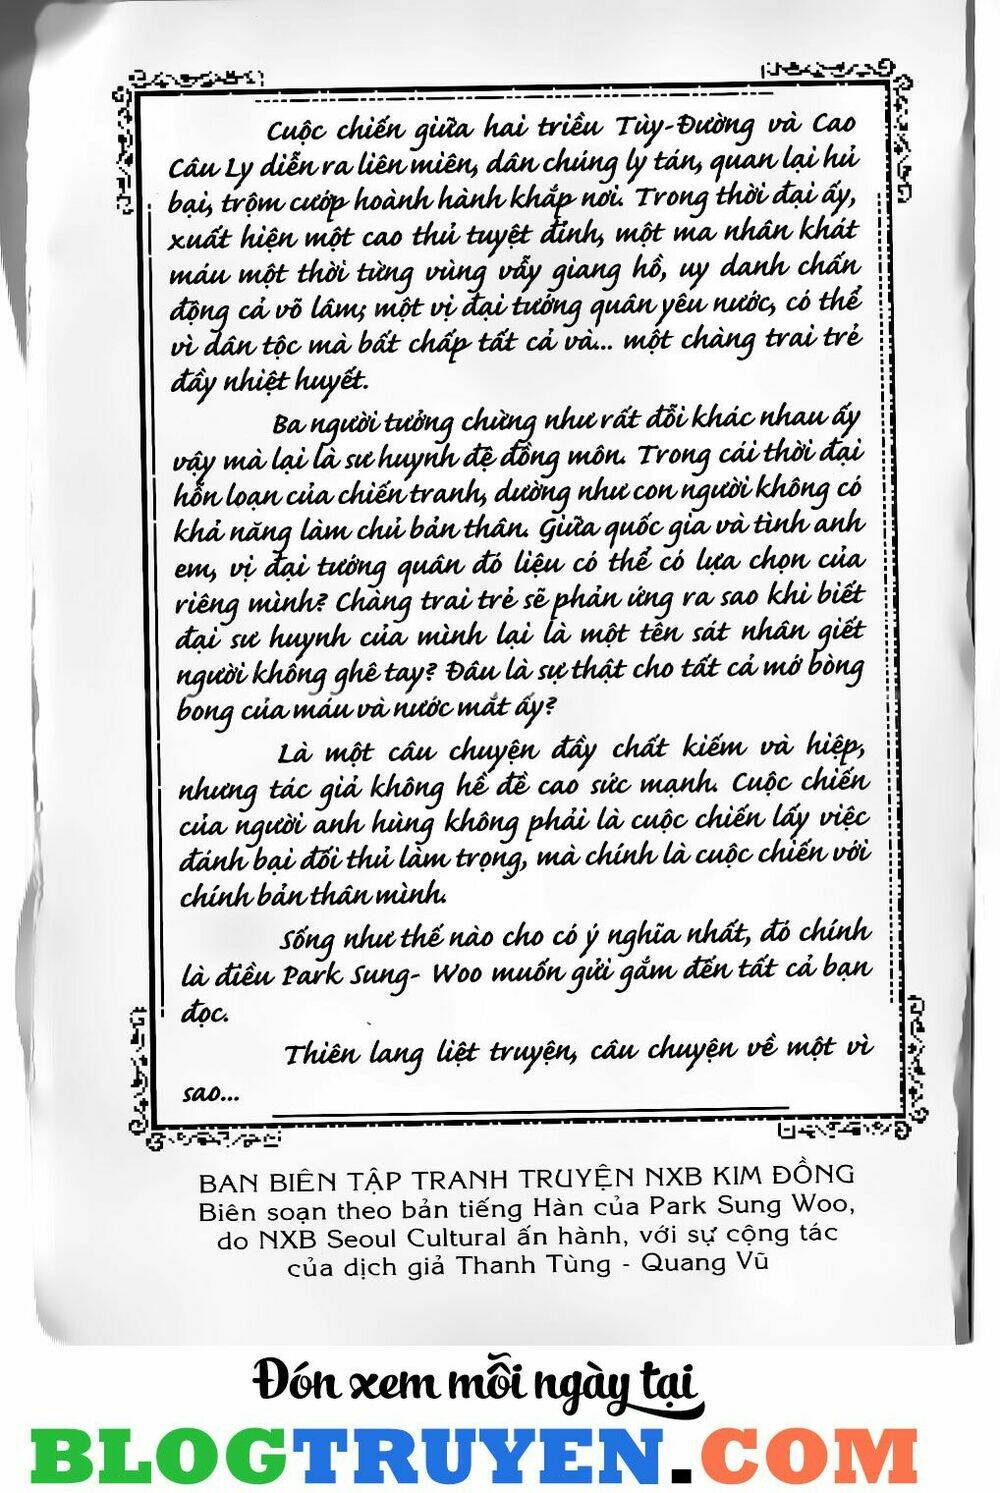 Cuộc chiến giữa hai triều Tùy-Đường và Cao
Câu Ly diễn ra liên miên, dân chúng ly tán, quan lại hủ
bại, trộm cướp hoành hành khắp nơi. Trong thời đại ấy,
xuất hiện một cao thủ tuyệt đỉnh, một ma nhân khát
máu một thời từng vùng vẫy giang hồ, uy danh chấn
động cả võ lâm; một vị đại tướng quân yêu nước, có thể
vì dân tộc mà bất chấp tất cả và... một chàng trai trẻ
đầy nhiệt huyết.
Ba người tưởng chừng như rất đỗi khác nhau ấy
vậy mà lại là sư huynh đệ đồng môn. Trong cái thời đại
hỗn loạn của chiến tranh, dường như con người không có
khả năng làm chủ bản thân. Giữa quốc gia và tình anh
em, vị đại tướng quân đó liệu có thể có lựa chọn của
riêng mình? Chàng trai trẻ sẽ phản ứng ra sao khi biết
đại sư huynh của mình lại là một tên sát nhân giết
người không ghê tay? Đâu là sự thật cho tất cả mớ bòng
bong của máu và nước mắt ấy?
Là một câu chuyện đầy chất kiếm và hiệp,
nhưng tác giả không hề đề cao sức mạnh. Cuộc chiến
của người anh hùng không phải là cuộc chiến lấy việc
đánh bại đối thủ làm trọng, mà chính là cuộc chiến với
chính bản thân mình.
Sống như thế nào cho có ý nghĩa nhất, đó chính
là điều Park Sung- Woo muốn gửi gắm đến tất cả bạn
đọc.
Thiên lang liệt truyện, câu chuyện về một vì
sao...
BAN BIÊN TẬP TRANH TRUYỆN NXB KIM ĐỒNG
Biên soạn theo bản tiếng Hàn của Park Sung Woo,
do NXB Seoul Cultural ấn hành, với sự cộng tác
của dịch giả Thanh Tùng - Quang Vũ
Đón xem mỗi ngày tại
BLOGTRUYEN.COM